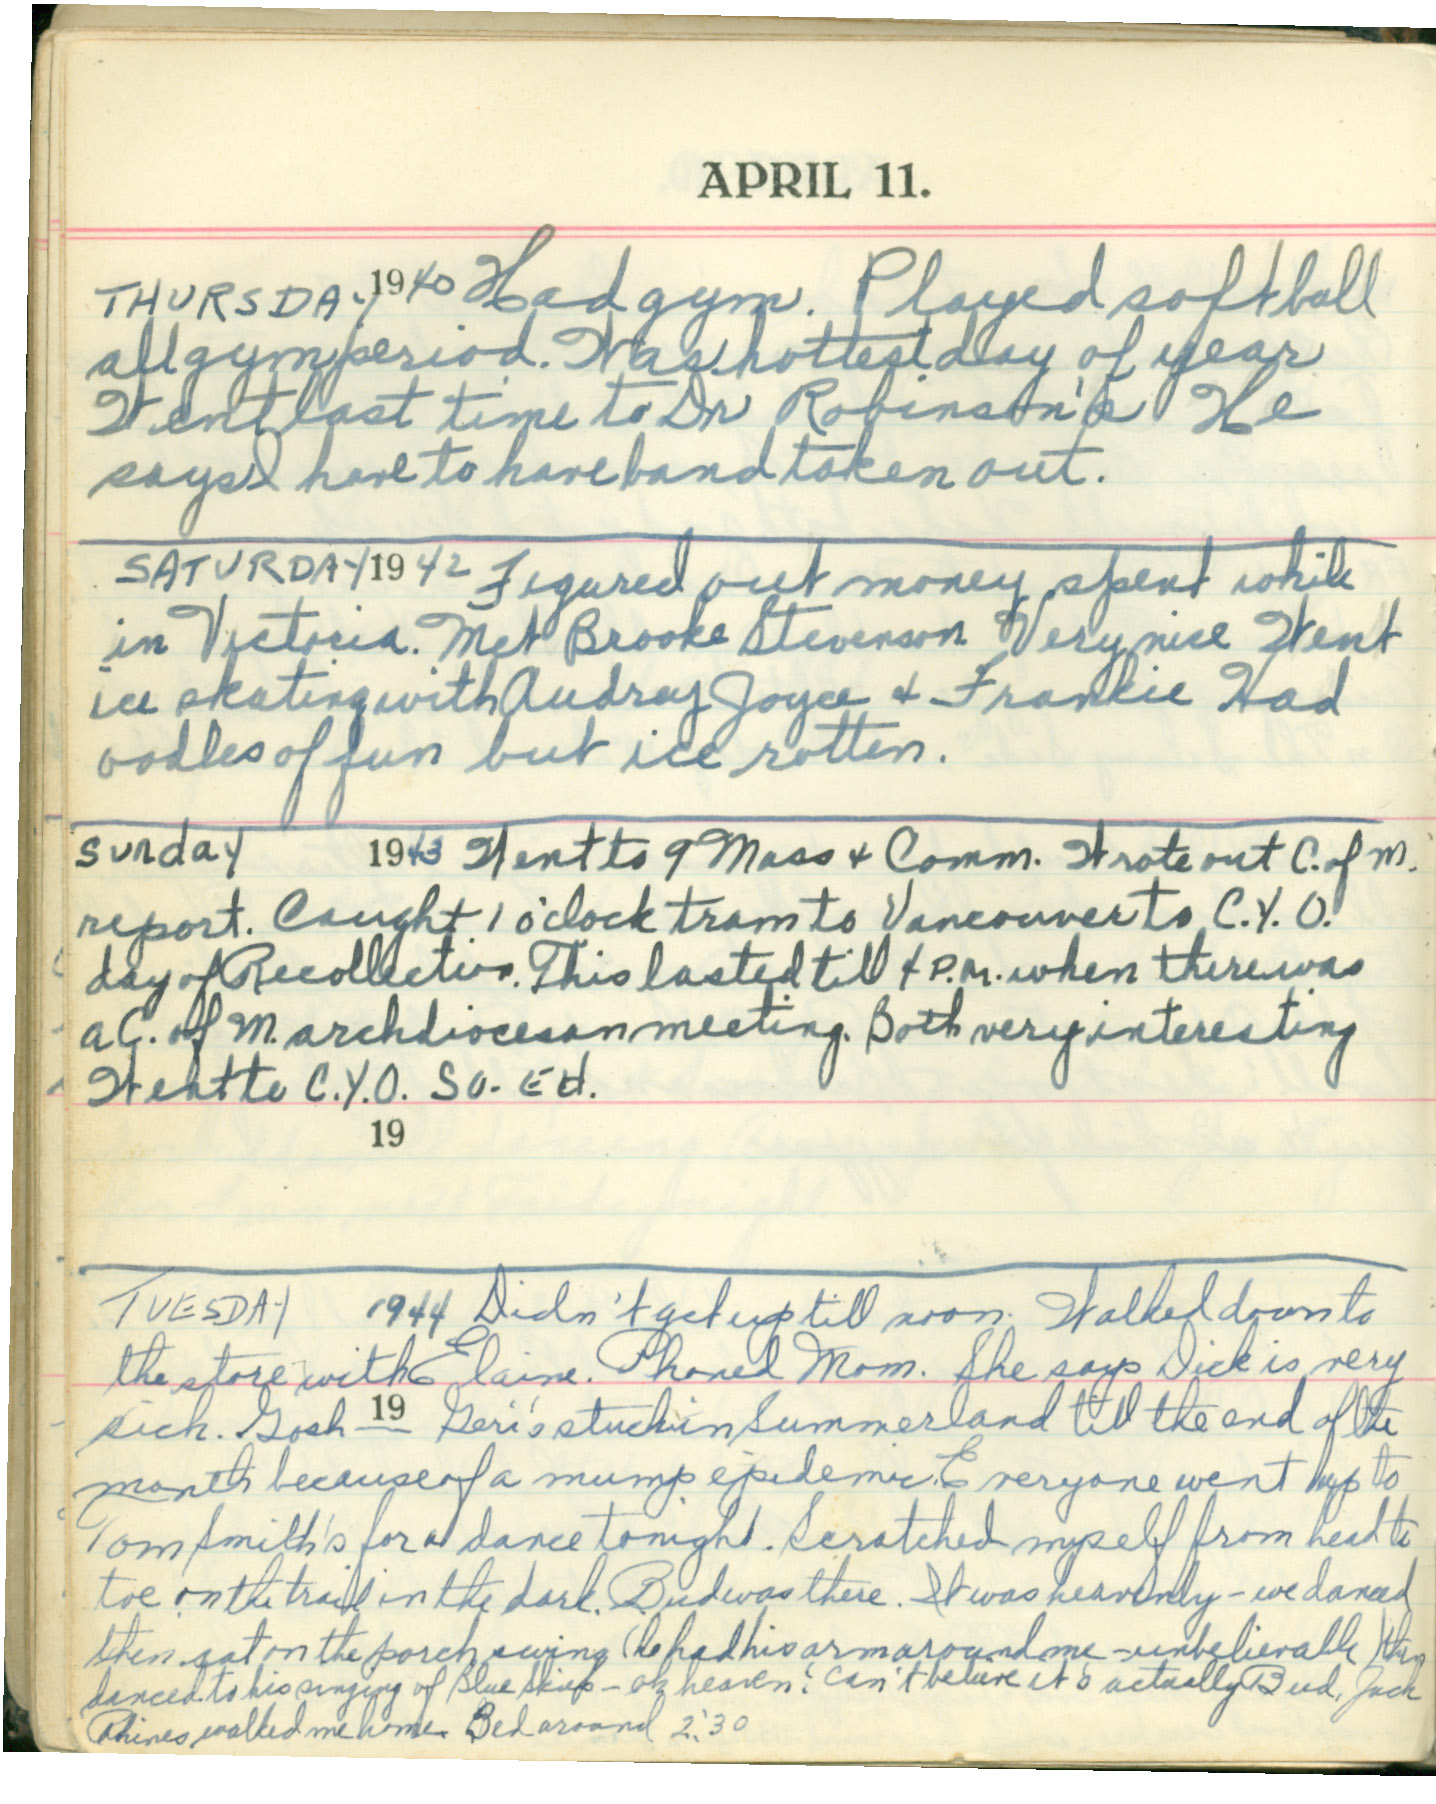 APRIL 11.
THURSDAY 1940 Had gym. Played softball
all gym period. Was hottest day of year
Went last time to Dr Robinson's He
says I have to have band taken out.
SATURDAY 1942 Figured out money spent while
in Victoria. Met Brooke Stevenson Very nice Went
ice skating with Audrey Joyce & Frankie Had
oodles of fun but ice rotten.
Sunday 1943 Went to 9 Mass & Comm. Wrote out C. of M.
report. Caught 1 o'clock tram to Vancouver to C.Y.O.
day of Recollection. This lasted till 4 P.M. when there was
a C. of M. archdiocesan meeting. Both very interesting
Went to C.Y.O. SO-Ed.
19
TUESDAY 1944 Didn't get up till noon. Walked down to
the store with Elaine. Phoned Mom. She says Dick is very
sick. Gosh — 19 Geri's stuck in Summerland till the end of the
month because of a mump epidemic. Everyone went up to
Tom Smith's for a dance tonight. Scratched myself from head to
toe on the trail in the dark. Bud was there. It was heavenly - we danced
then sat on the porch swing (he had his arm around me - unbelievable) then
danced to his singing of Blue Skies - oh heaven! Can't believe it's actually Bud. Jack
Rhines walked me home. Bed around 2:30